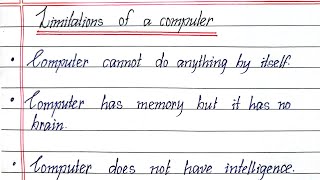 Limitations of a computer
• Computer cannot do anything by itself.
• Computer has memory but it has no
brain.
• Computer does not have intelligence.